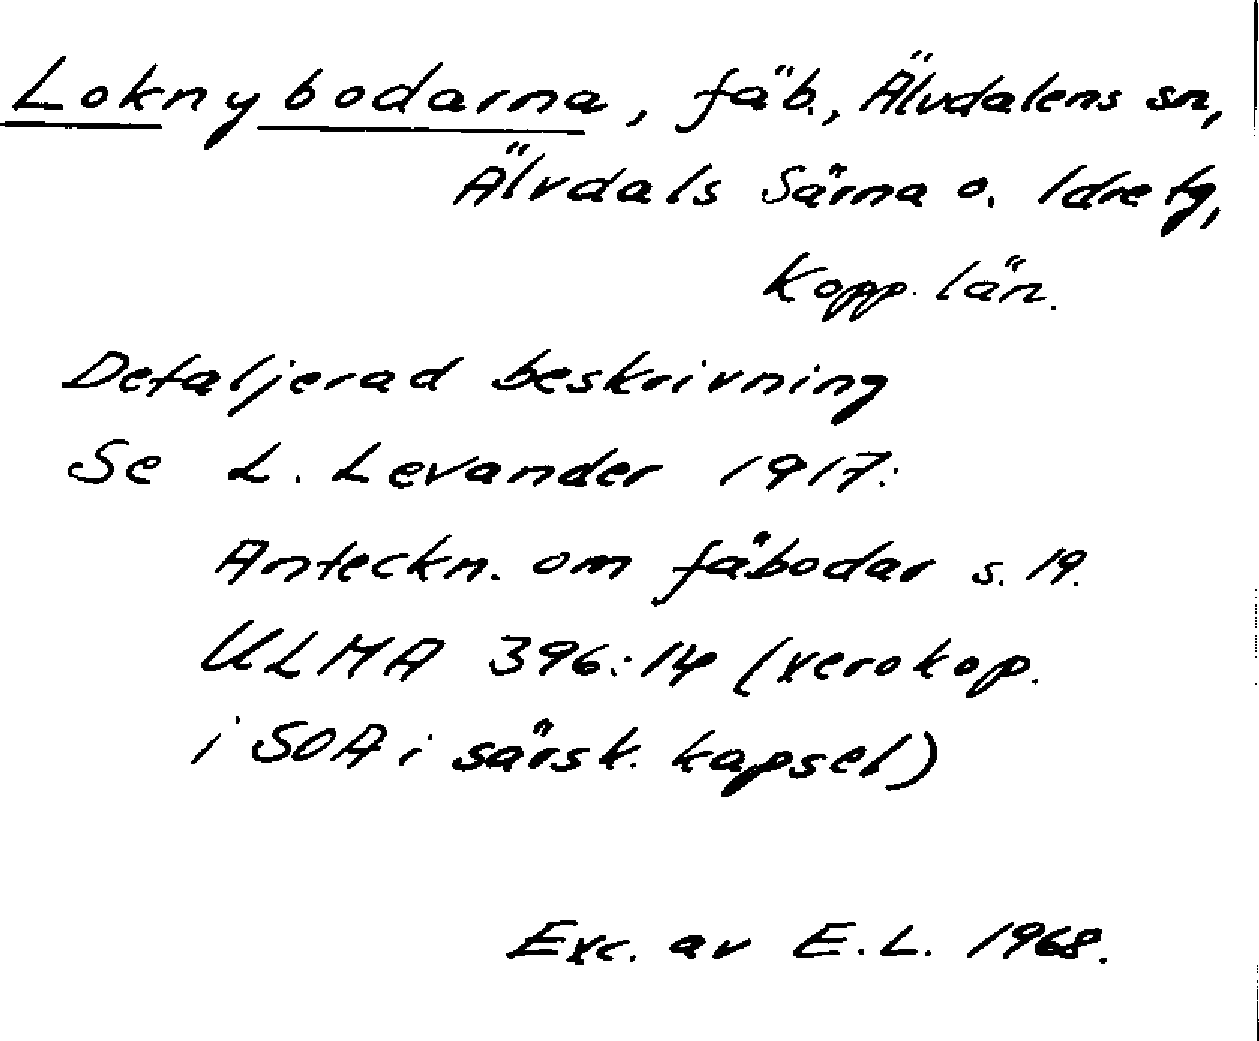 Loknybodarna, fäb., Älvdalens sn,
Älvdals Särna o. Idre tg,
Kopp. län.
Detaljerad beskrivning
Se L. Levander 1917:
Anteckn. om fäbodar s. 19.
ULMA 396:14 (xerokop.
i SOA i särsk. kapsel)
Exc. av E.L. 1968.